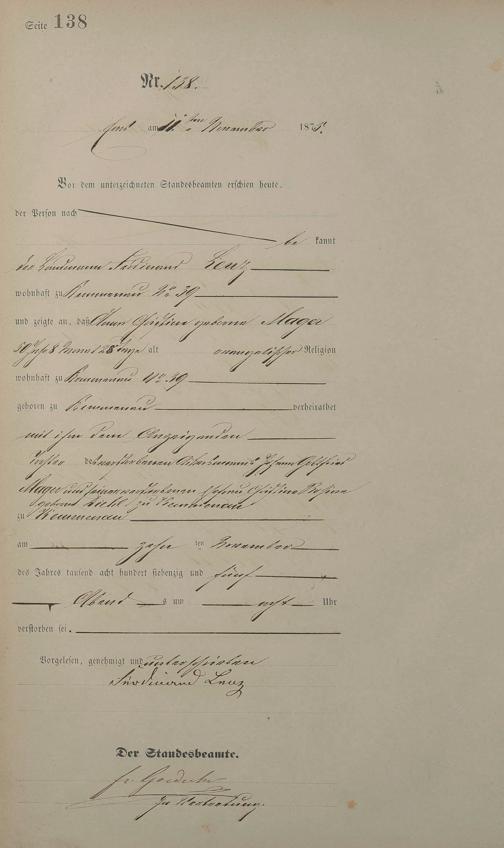 Seite 138
Nr. 138.
Ems am 11ten November 1875.
Vor dem unterzeichneten Standesbeamten erschien heute,
der Person nach
be kannt
der Landmann Ferdinand Lenz
wohnhaft zu Kemmenau No 39
und zeigte an, daß Christine geborene Mager
50 Jahr 8 Monat 28 Tage alt evangelischer Religion
wohnhaft zu Kemmenau No 39
geboren zu Kemmenau verheirathet
mit ihm dem Anzeigenden
Tochter des verstorbenen Ackersmanns Johann Gottfried
Mager und seiner verstorbenen Ehefrau Christine
geborene zu Kemmenau
zu Kemmenau
am zehn ten November
des Jahres tausend acht hundert siebenzig und fünf
Abend s um acht Uhr
verstorben sei.
Vorgelesen, genehmigt und unterschrieben
Ferdinand Lenz
Der Standesbeamte.
In Vertretung.